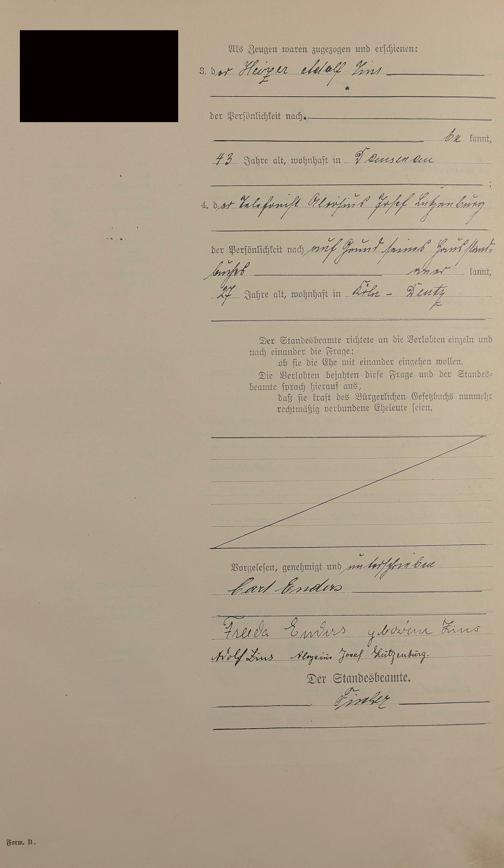 Als Zeugen waren zugezogen und erschienen:
3. der Heizer Adolf Zins
der Persönlichkeit nach
be kannt,
43 Jahre alt, wohnhaft in Dausenau
;
4. der Telefonist Aloisius Josef Lutzenburg
der Persönlichkeit nach auf Grund seines Hausstand-
buchs aner kannt,
27 Jahre alt, wohnhaft in Köln - Deutz
Der Standesbeamte richtete an die Verlobten einzeln und
nach einander die Frage:
ob sie die Ehe mit einander eingehen wollen.
Die Verlobten bejahten diese Frage und der Standes-
beamte sprach hierauf aus,
daß sie kraft des Bürgerlichen Gesetzbuchs nunmehr
rechtmäßig verbundene Eheleute seien.
Vorgelesen, genehmigt und unterschrieben
Carl Enders
Freida Enders geborene Zins
Adolf Zins Aloysius Josef Lutzenburg.
Der Standesbeamte.
Form. B.